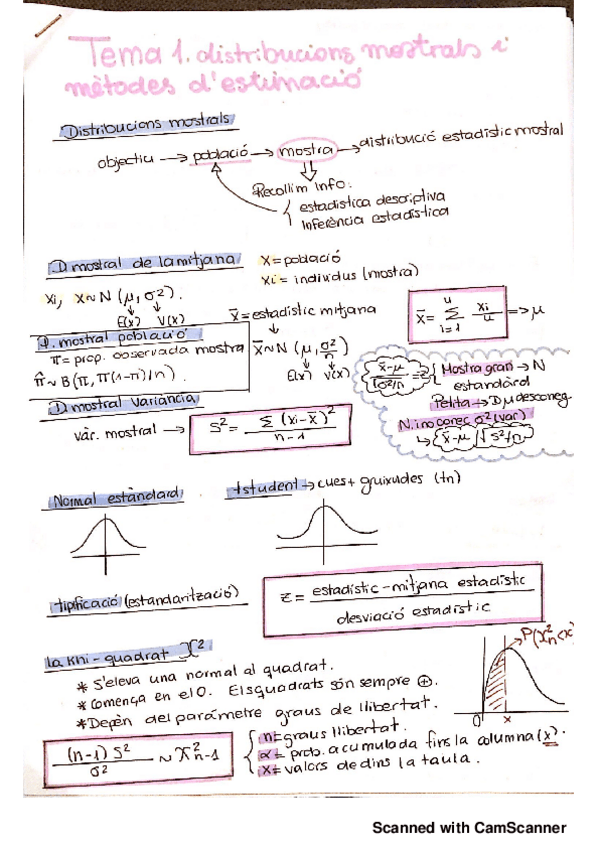 Tema 1. distribucions mostrals i
mètodes d'estimació
Distribucions mostrals
objectiu → població → mostra → distribució estadístic mostral
Recollim info.
estadística descriptiva
Inferència estadística
D mostral de la mitjana
X = població
xi = individus (mostra)
xi, X ~ N (μ, σ2).
E(x) V(x)
x̄ = estadístic mitjana
x̄ = Σ xi/n => μ
i=1
D. mostral població
π = prop. observada mostra
π̂ ~ B(π, π(1-π)/n).
x̄ ~ N (μ, σ²/n)
E(x) V(x)
x̄-μ
√σ²/n
Mostra gran → N
estandard
Petita → Dμ desconeg
N. i no conec σ2 (var)
x̄-μ / √s²/n
D mostral Variancia
vàr. mostral → S² = Σ (xi - x̄)² / n-1
Normal estàndard
tstudent → cues + gruixudes (tn)
tipificació (estandarització)
z = estadístic - mitjana estadístic / desviació estadístic
la Khi-quadrat X²
P(X²n<x
* S'eleva una normal al quadrat.
* Comença en el 0. Els quadrats són sempre ⊕.
* Depèn del paràmetre graus de llibertat.
0 x
(n-1) S² / σ² ~ X²n-1
n = graus llibertat.
α = prob. acumulada fins la columna (x).
x = valors de dins la taula.
Scanned with CamScanner